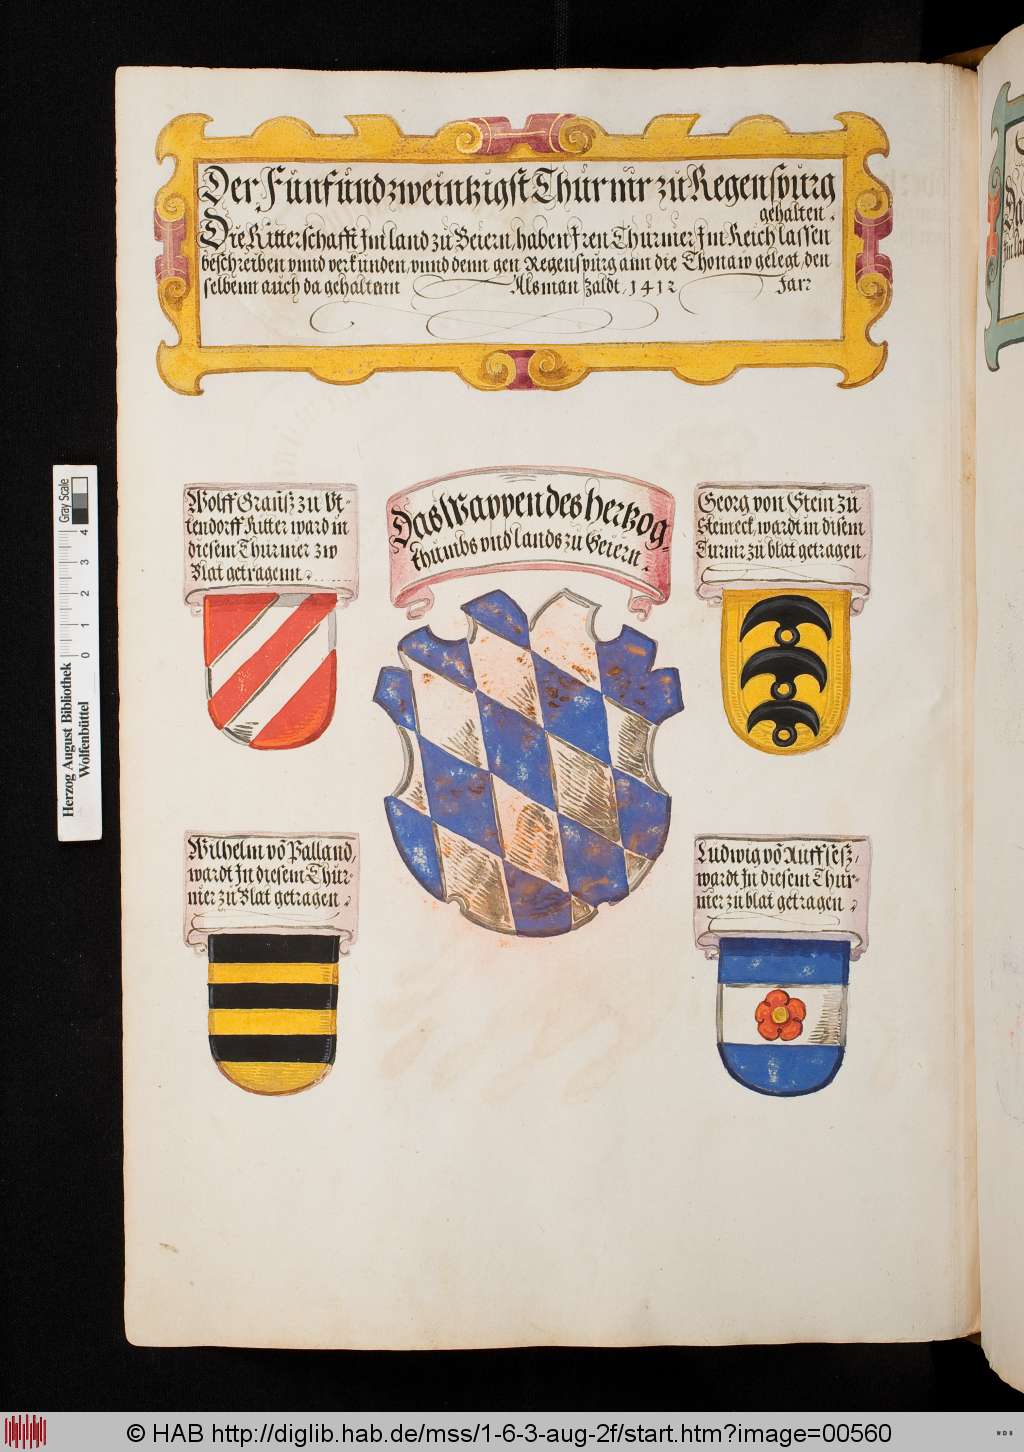 Der Fünfundzweintzigst Thurnir zu Regenspurg
gehalten.
Die Ritterschafft Im land zu Beiern, haben Iren Thurnier Im Reich lassen
beschreiben vnnd verkunden, vnnd denn gen Regenspurg ann die Thonaw gelegt, den
selbenn auch da gehaltenn Alsman zaldt, 1412 Jarr
Wolff Grauß zu Vt-
tendorff Ritter ward in
diesem Thurnier zw
Blat getragenn.
Das Wappen des Hertzog-
thumbs vnd lands zu Beiern.
Georg von Stein zu
Steineck, wardt in disem
Turnir zu blat getragen
Wilhelm vō Palland,
wardt In diesem Thur-
nier zu Blat getragen.
Ludwig vō Auffseß,
wardt In diesem Thur-
nier zu blat getragen
Herzog August Bibliothek
Wolfenbüttel
0 1 2 3 4
Gray Scale
© HAB http://diglib.hab.de/mss/1-6-3-aug-2f/start.htm?image=00560
WDB